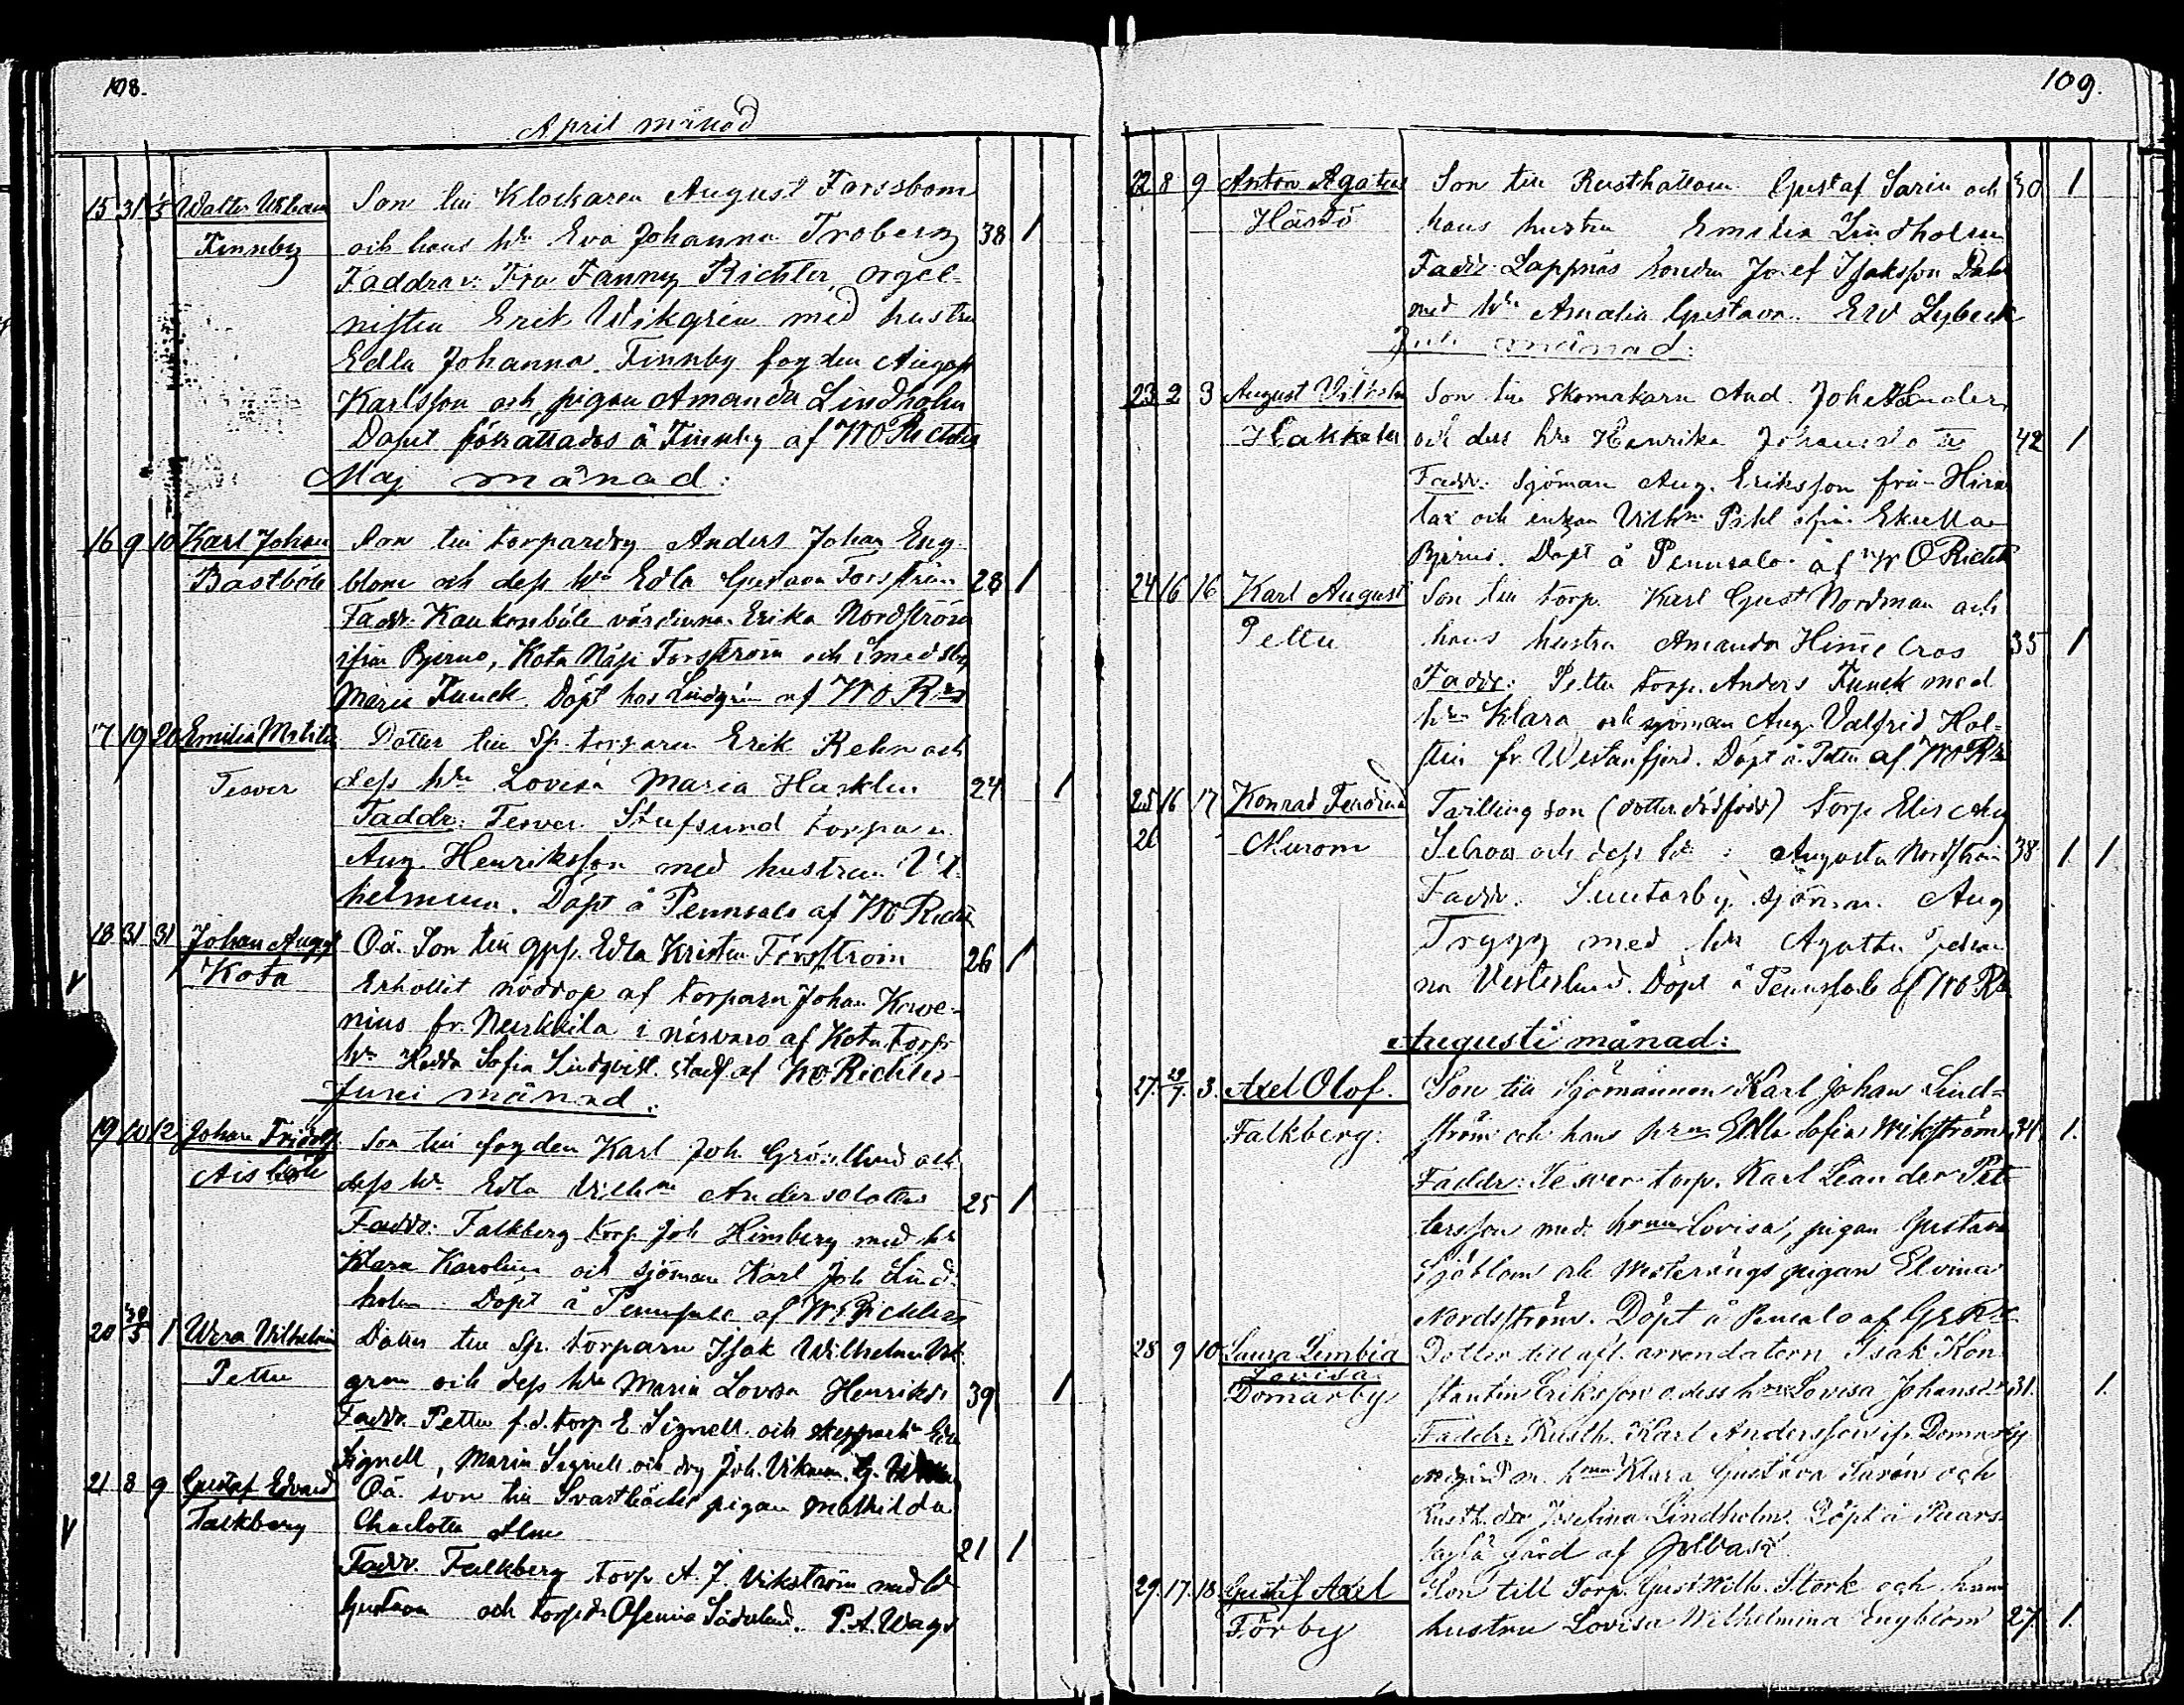 108.
April månad
15 31 1/5 Walter William Son till Klockaren August Forssbom
Finnby och hans hu Eva Johanna Froberg 38 1
Faddrar: Fru Fanny Richter, orgel-
nisten Erik Wikgren med hustru
Edla Johanna. Finnby fogden August
Karlsson och pigan Amanda Lindholm
Dopet förrättades å Finnby af WORichter
Maj månad:
16 9 10 Karl Johan Son till torpardrg Anders Johan Eng-
Bastböle blom och dess hu Edla Gustava Forsström 28 1
Faddr. Kaukosböle värdinna Erika Nordström
ifrån Bjerno, Kota Forsström och smedsdr
Maria Funck. Döpt hos Lindgrén af WORr
17 19 20 Emilia Matilda Dotter till Sp. torparen Erik Rehn och
Tesver dess hu Lovisa Maria Hacklin 24 1
Faddr: Tesver Stufsund torparen
Aug. Henriksson med hustru Vil-
helmina. Döpt å Pennsalo af WORicht
18 31 31 Johan August Oä. Son till qps. Edla Kristina Forsström 26 1
Kota Erhållit nöddop af torparen Johan Kowe-
nius fr. Nurkkila i närvaro af Kota torp.
hu Hedda Sofia Lindqvist. stadf. af WORichter
Juni månad:
19 10 12 Johan Fridolf Son till fogden Karl Joh. Grönlund och
Aisböle dess hu Edla Vilhna Andersdotter 25 1
Faddr: Falkberg torp Joh Himberg med hu
Klara Karolina och sjöman Karl Joh Lind-
holm. Döpt å Pennsalo af WORichter
20 30/5 1 Wera Vilhelmina Dotter till Sp. torparen Isak Wilhelm Vik-
Pettu gren och dess hu Maria Lovisa Henriksdr 39 1
Faddr. Pettu f.d. torp E Signell och Edla
Signell, Maria Signell och drg Joh. Vikman.
21 8 9 Gustaf Edvard Oä son till Svartbäcks pigan Mathilda
Falkberg Charlotta Alm 21 1
Faddr. Falkberg torp. A. J. Vikström med hu
Gustava och torpdr Söderlund. P. A. Wags

109.
22 8 9 Anton Agatus Son till Rusthållaren Gustaf Sarin och 30 1
Härdö hans hustru Emilia Lindholm
Faddr: Lappnäs bonden Josef Isaksson Dahl
med hu Amalia Gustava. EW Lybeck
Juli månad:
23 2 3 August Vilhelm Son till Skomakarn And. Joh.
och dess hu Henrika Johansdotter 42 1
Faddr: Sjöman Aug. Eriksson från
och enkan Vilhna Pihl ifrån
Bjerno. Döpt å Pennsalo af WORicht
24 16 16 Karl August Son till torp. Karl Gust Nordman och
Pettu hans hustru Amanda Himelroos 35 1
Faddr: Pettu torp. Anders Funck med
hu Klara och sjöman Aug. Valfrid Hol-
stein fr. Westanfjerd. Döpt å Pettu af WORr
25 16 17 Konrad Ferdinand Tvilling son (dotter dödfödd) torp Elis Aug
26 Murom och dess hu Augusta Nordström 38 1 1
Faddr. sjöman Aug
Trygg med hu Agatha Johan-
na Vesterlund. Döpt å Pennsalo af WORr
Augusti månad:
27. 29/7. 3. Axel Olof. Son till Sjömannen Karl Johan Lind-
Falkberg: ström och hans hru Edla Sofia Wikström 34 1.
Faddr: Tesver torp. Karl Leander Pet-
tersson med hrun Lovisa, pigan Gustava
Sjöblom och Westerängs pigan Elvina
Nordström. Döpt å Pensalo af
28 9 10 Laura Limbia Dotter till afl. arrendatorn Isak Kon-
Lovisa.
Domarby stantin Eriksson o. dess hru Lovisa Johansdr 31. 1.
Faddr: Rusth. Karl Andersson ifr. Domarby
m. hrun Klara Gustava Sarén och
Rusth. dtr Lindholm. Döpt å
gård af
29. 17. 18 Gustaf Axel Son till Torp. Gust Wilh. Stork och hans
Förby hustru Lovisa Wilhelmina Engblom 27. 1.